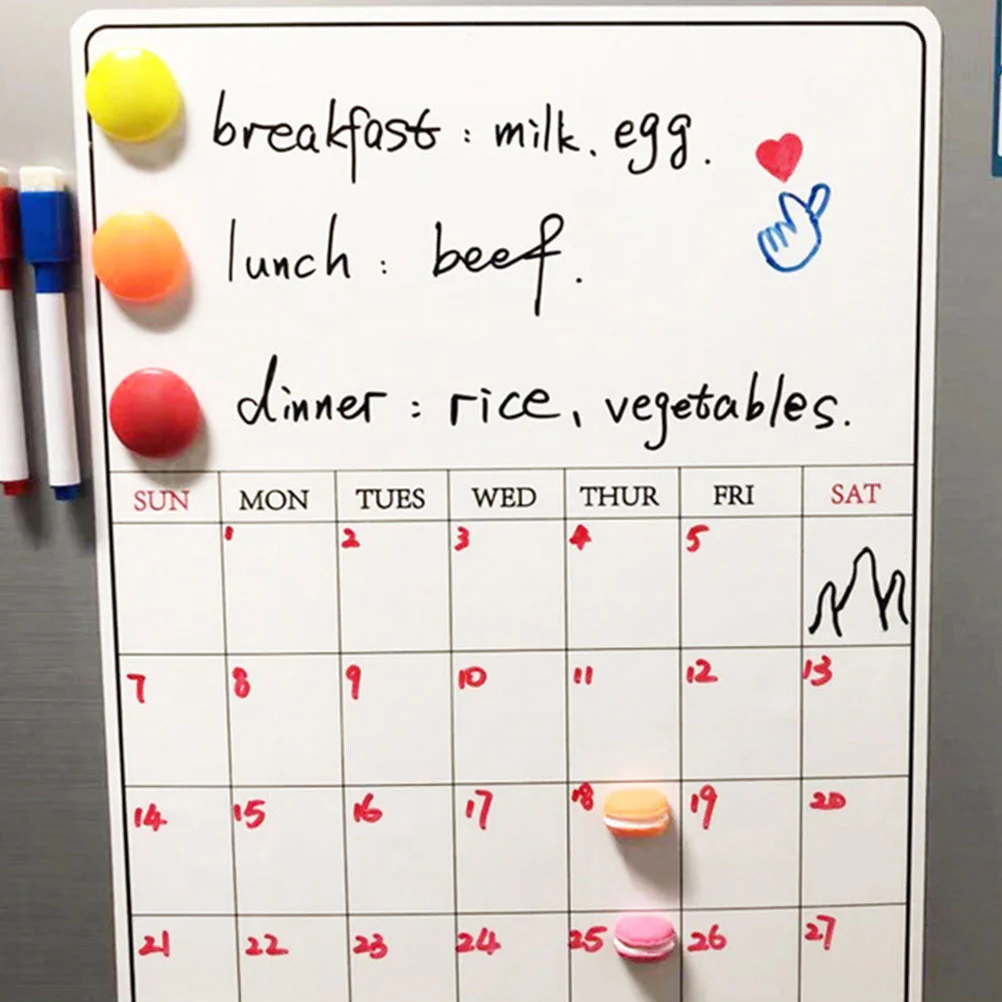 breakfast : milk. egg.
lunch : beef.
dinner : rice, vegetables.
SUN MON TUES WED THUR FRI SAT
1 2 3 4 5
7 8 9 10 11 12 13
14 15 16 17 18 19 20
21 22 23 24 25 26 27